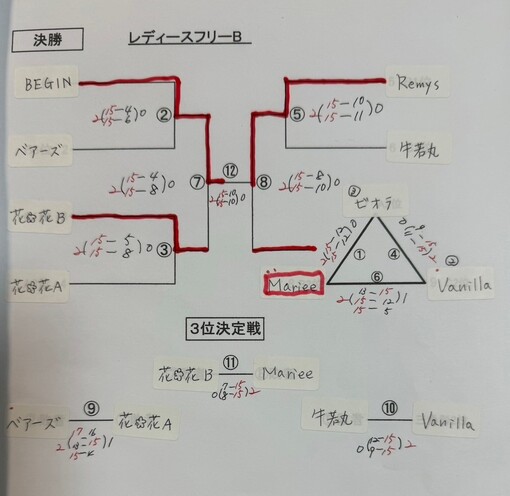 決勝 レディースフリーB
BEGIN
Remys
2(15-4 15-6)0 ②
⑤ 2(15-10 15-11)0
ベアーズ
牛若丸
2(15-4 15-8)0 ⑦
⑫
⑧ 2(15-8 15-10)0
2(15-10 15-10)0
花㐂花B
ビオラ
2(15-5 15-8)0 ③
① ④
花㐂花A
Mariee ⑥ Vanilla
2(13-15 15-12 15-5)1
3位決定戦
⑪
花㐂花B Mariee
0(7-15 8-15)2
⑨ ⑩
ベアーズ 花㐂花A
牛若丸 Vanilla
0(12-15 9-15)2